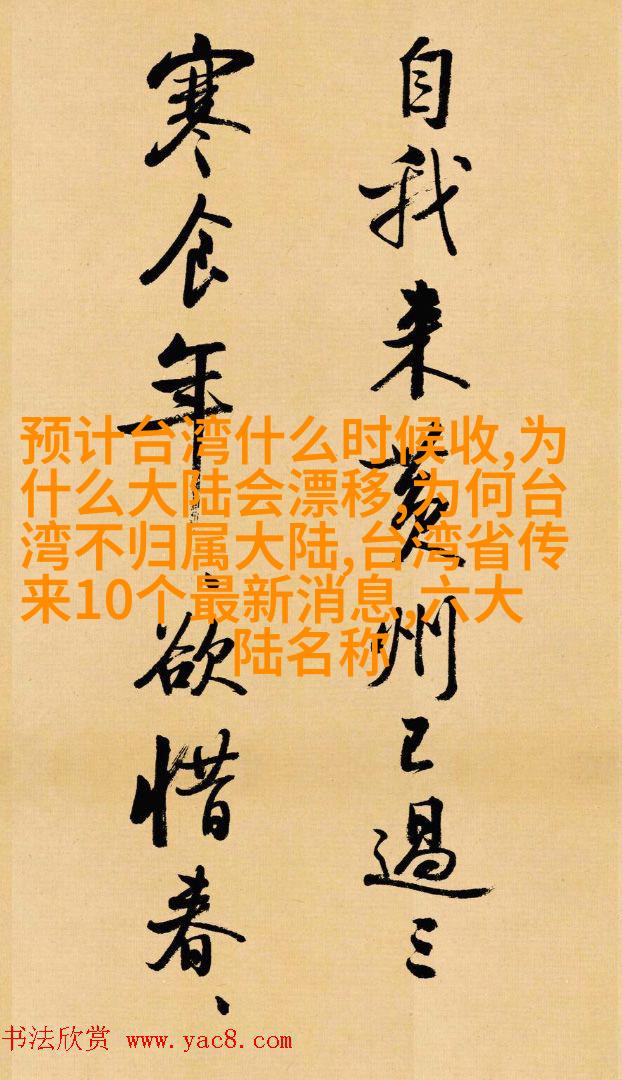 自我来黄州已過三
寒食年、欲惜春、
预计台湾什么时候收,为
什么大陆会漂移,为何台
湾不归属大陆,台湾省传
来10个最新消息,六大
陆名称
书法欣赏 www.yac8.com